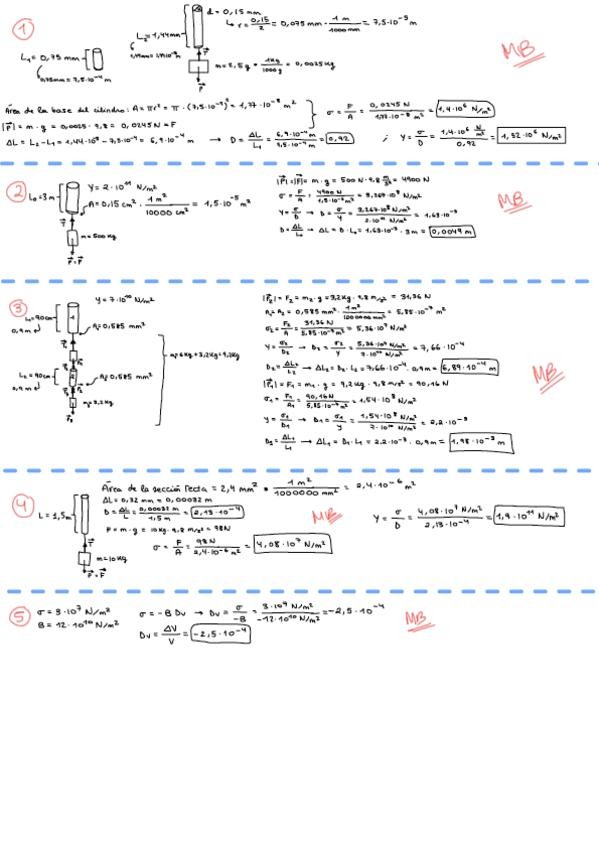 1
d = 0,15 mm
↳ r = 0,15/2 = 0,075 mm · 1 m/1000 mm = 7,5·10⁻⁵ m
L₂ = 1,44 mm
L₁ = 0,75 mm
0,75mm = 7,5·10⁻⁴ m
m = 2,5 g · 1Kg/1000 g = 0,0025 Kg
MB
Área de la base del cilindro: A = πr² = π · (7,5·10⁻⁵)² = 1,77·10⁻⁸ m²
σ = F/A = 0,0245 N/1,77·10⁻⁸ m² = 1,4·10⁶ N/m²
|P| = m · g = 0,0025 · 9,8 = 0,0245 N = F
ΔL = L₂ - L₁ = 1,44·10⁻³ - 7,5·10⁻⁴ = 6,9·10⁻⁴ m → D = ΔL/L₁ = 6,9·10⁻⁴ m/7,5·10⁻⁴ m = 0,92 ; Y = σ/D = 1,4·10⁶ N/m²/0,92 = 1,52·10⁶ N/m²
2
L₀ = 3m
Y = 2·10¹¹ N/m²
A = 0,15 cm² · 1 m²/10000 cm² = 1,5·10⁻⁵ m²
T
m = 500 Kg
P = F
|P| = |F| = m · g = 500 N · 9,8 m/s² = 4900 N
σ = F/A = 4900 N/1,5·10⁻⁵ m² = 3,267·10⁸ N/m²
Y = σ/D → D = σ/Y = 3,267·10⁸ N/m²/2·10¹¹ N/m² = 1,63·10⁻³
D = ΔL/L₀ → ΔL = D · L₀ = 1,63·10⁻³ · 3m = 0,0049 m
MB
3
Y = 7·10¹⁰ N/m²
L₁ = 90cm
0,9m
1
A₁ = 0,585 mm²
m₁ = 6Kg + 3,2Kg = 9,2Kg
L₂ = 90cm
0,9m
2
A₂ = 0,585 mm²
m₂ = 3,2Kg
|P₂| = F₂ = m₂ · g = 3,2Kg · 9,8 m/s² = 31,36 N
A₁ = A₂ = 0,585 mm² · 1m²/1000000 mm² = 5,85·10⁻⁷ m²
σ₂ = F₂/A₂ = 31,36 N/5,85·10⁻⁷ m² = 5,36·10⁷ N/m²
Y = σ₂/D₂ → D₂ = σ₂/Y = 5,36·10⁷ N/m²/7·10¹⁰ N/m² = 7,66·10⁻⁴
D₂ = ΔL₂/L₂ → ΔL₂ = D₂ · L₂ = 7,66·10⁻⁴ · 0,9m = 6,89·10⁻⁴ m
|P₁| = F₁ = m₁ · g = 9,2Kg · 9,8 m/s² = 90,16 N
σ₁ = F₁/A₁ = 90,16 N/5,85·10⁻⁷ m² = 1,54·10⁸ N/m²
Y = σ₁/D₁ → D₁ = σ₁/Y = 1,54·10⁸ N/m²/7·10¹⁰ N/m² = 2,2·10⁻³
D₁ = ΔL₁/L₁ → ΔL₁ = D₁ · L₁ = 2,2·10⁻³ · 0,9m = 1,98·10⁻³ m
MB
4
L = 1,5m
T
m = 10Kg
P = F
Área de la sección recta = 2,4 mm² · 1 m²/1000000 mm² = 2,4·10⁻⁶ m²
ΔL = 0,32 mm = 0,00032 m
D = ΔL/L = 0,00032 m/1,5 m = 2,13·10⁻⁴
F = m · g = 10Kg · 9,8 m/s² = 98N
σ = F/A = 98N/2,4·10⁻⁶ m² = 4,08·10⁷ N/m²
MB
Y = σ/D = 4,08·10⁷ N/m²/2,13·10⁻⁴ = 1,9·10¹¹ N/m²
5
σ = 3·10⁷ N/m²
B = 12·10¹⁰ N/m²
σ = -B Dv → Dv = σ/-B = 3·10⁷ N/m²/-12·10¹⁰ N/m² = -2,5·10⁻⁴
Dv = ΔV/V = -2,5·10⁻⁴
MB